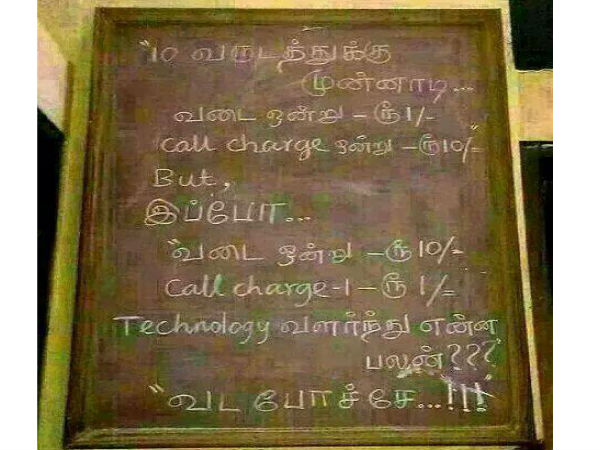 "10 வருடத்துக்கு
முன்னாடி...
வடை ஒன்று - ரூ 1/-
call charge ஒன்று - ரூ10/-"
But,
இப்போ...
"வடை ஒன்று - ரூ 10/-
call charge-1 - ரூ 1/-
Technology வளர்ந்து என்ன
பலன்???"
"வட போச்சே...!!!"